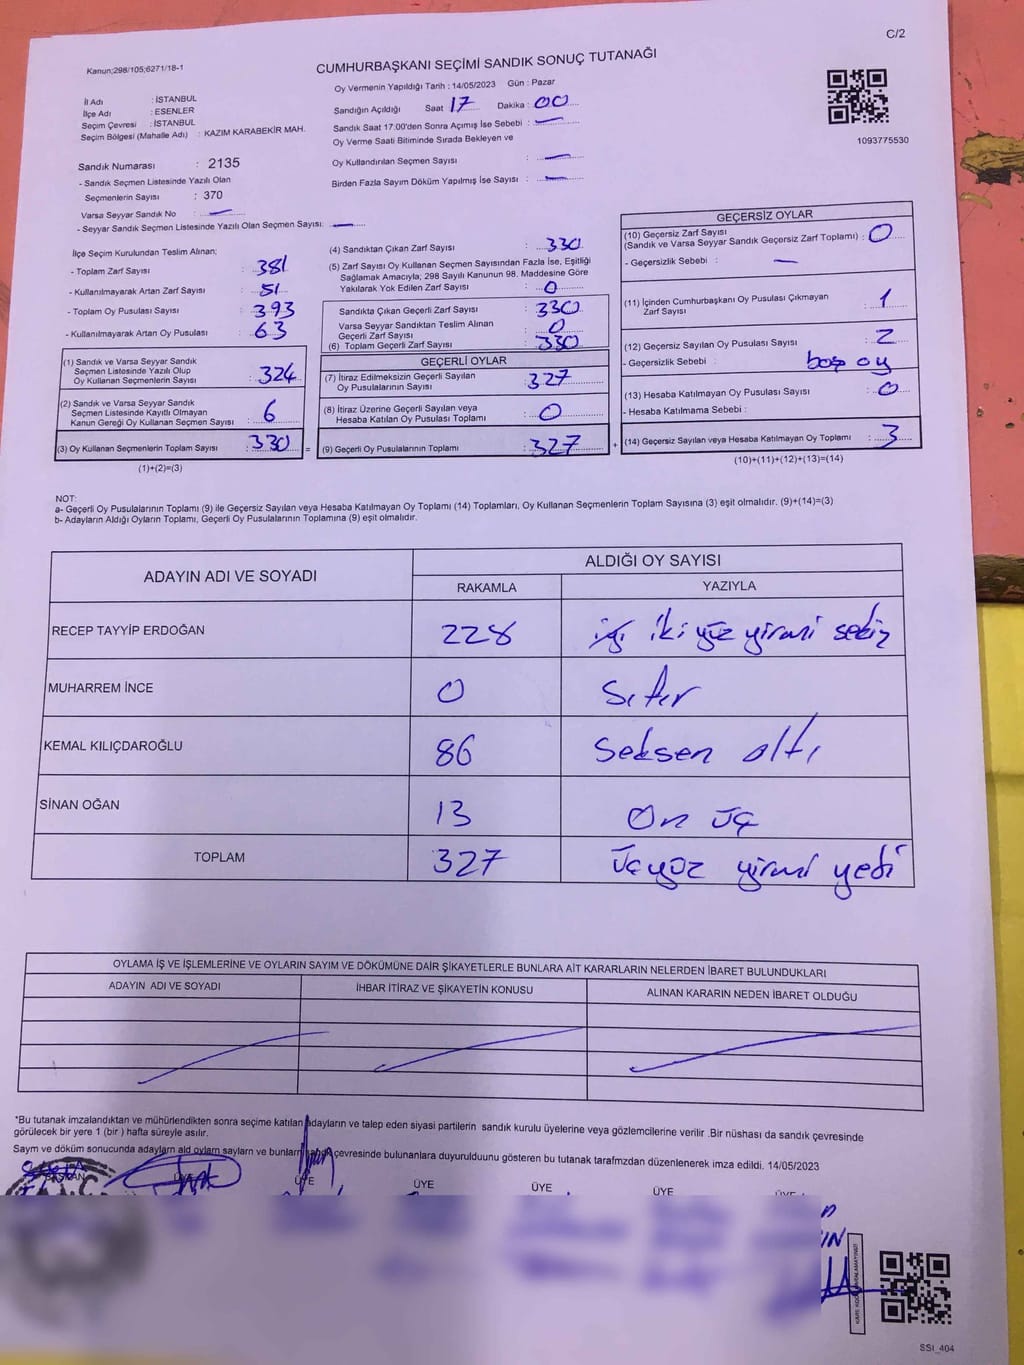 C/2
Kanun;298/105;6271/18-1
CUMHURBAŞKANI SEÇİMİ SANDIK SONUÇ TUTANAĞI
Oy Vermenin Yapıldığı Tarih : 14/05/2023 Gün : Pazar
İl Adı : İSTANBUL
İlçe Adı : ESENLER
Seçim Çevresi : İSTANBUL
Seçim Bölgesi (Mahalle Adı) : KAZIM KARABEKİR MAH.
Sandığın Açıldığı Saat 17 Dakika : 00
Sandık Saat 17.00'den Sonra Açımış İse Sebebi : —
Oy Verme Saati Bitiminde Sırada Bekleyen ve
Oy Kullandırılan Seçmen Sayısı : —
Birden Fazla Sayım Döküm Yapılmış İse Sayısı : —
1093775530
Sandık Numarası : 2135
- Sandık Seçmen Listesinde Yazılı Olan
Seçmenlerin Sayısı : 370
Varsa Seyyar Sandık No : —
- Seyyar Sandık Seçmen Listesinde Yazılı Olan Seçmen Sayısı: —
İlçe Seçim Kurulundan Teslim Alınan;
- Toplam Zarf Sayısı : 381
- Kullanılmayarak Artan Zarf Sayısı : 51
- Toplam Oy Pusulası Sayısı : 393
- Kullanılmayarak Artan Oy Pusulası : 63
(1) Sandık ve Varsa Seyyar Sandık
Seçmen Listesinde Yazılı Olup
Oy Kullanan Seçmenlerin Sayısı : 324
(2) Sandık ve Varsa Seyyar Sandık
Seçmen Listesinde Kayıtlı Olmayan
Kanun Gereği Oy Kullanan Seçmen Sayısı : 6
(3) Oy Kullanan Seçmenlerin Toplam Sayısı : 330 =
(1)+(2)=(3)
(4) Sandıktan Çıkan Zarf Sayısı : 330
(5) Zarf Sayısı Oy Kullanan Seçmen Sayısından Fazla İse, Eşitliği
Sağlamak Amacıyla; 298 Sayılı Kanunun 98. Maddesine Göre
Yakılarak Yok Edilen Zarf Sayısı : 0
Sandıkta Çıkan Geçerli Zarf Sayısı : 330
Varsa Seyyar Sandıktan Teslim Alınan
Geçerli Zarf Sayısı : 0
(6) Toplam Geçerli Zarf Sayısı : 330
GEÇERLİ OYLAR
(7) İtiraz Edilmeksizin Geçerli Sayılan
Oy Pusulalarının Sayısı : 327
(8) İtiraz Üzerine Geçerli Sayılan veya
Hesaba Katılan Oy Pusulası Toplamı : 0
(9) Geçerli Oy Pusulalarının Toplamı : 327 +
GEÇERSİZ OYLAR
(10) Geçersiz Zarf Sayısı
(Sandık ve Varsa Seyyar Sandık Geçersiz Zarf Toplamı) : 0
- Geçersizlik Sebebi : —
(11) İçinden Cumhurbaşkanı Oy Pusulası Çıkmayan
Zarf Sayısı : 1
(12) Geçersiz Sayılan Oy Pusulası Sayısı : 2
- Geçersizlik Sebebi : boş oy
(13) Hesaba Katılmayan Oy Pusulası Sayısı : 0
- Hesaba Katılmama Sebebi :
(14) Geçersiz Sayılan veya Hesaba Katılmayan Oy Toplamı : 3
(10)+(11)+(12)+(13)=(14)
NOT:
a- Geçerli Oy Pusulalarının Toplamı (9) ile Geçersiz Sayılan veya Hesaba Katılmayan Oy Toplamı (14) Toplamları, Oy Kullanan Seçmenlerin Toplam Sayısına (3) eşit olmalıdır. (9)+(14)=(3)
b- Adayların Aldığı Oyların Toplamı, Geçerli Oy Pusulalarının Toplamına (9) eşit olmalıdır.
ADAYIN ADI VE SOYADI ALDIĞI OY SAYISI
RAKAMLA YAZIYLA
RECEP TAYYİP ERDOĞAN 228 iki yüz yirmi sekiz
MUHARREM İNCE 0 Sıfır
KEMAL KILIÇDAROĞLU 86 Seksen altı
SİNAN OĞAN 13 On üç
TOPLAM 327 Üçyüz yirmi yedi
OYLAMA İŞ VE İŞLEMLERİNE VE OYLARIN SAYIM VE DÖKÜMÜNE DAİR ŞİKAYETLERLE BUNLARA AİT KARARLARIN NELERDEN İBARET BULUNDUKLARI
ADAYIN ADI VE SOYADI İHBAR İTİRAZ VE ŞİKAYETİN KONUSU ALINAN KARARIN NEDEN İBARET OLDUĞU
*Bu tutanak imzalandıktan ve mühürlendikten sonra seçime katılan adayların ve talep eden siyasi partilerin sandık kurulu üyelerine veya gözlemcilerine verilir .Bir nüshası da sandık çevresinde
görülecek bir yere 1 (bir ) hafta süreyle asılır.
Sayım ve döküm sonucunda adayların ald oyların sayların ve bunların sandık çevresinde bulunanlara duyurulduunu gösteren bu tutanak tarafmzdan düzenlenerek imza edildi. 14/05/2023
BAŞKAN ÜYE ÜYE ÜYE ÜYE ÜYE ÜYE
SSİ_404